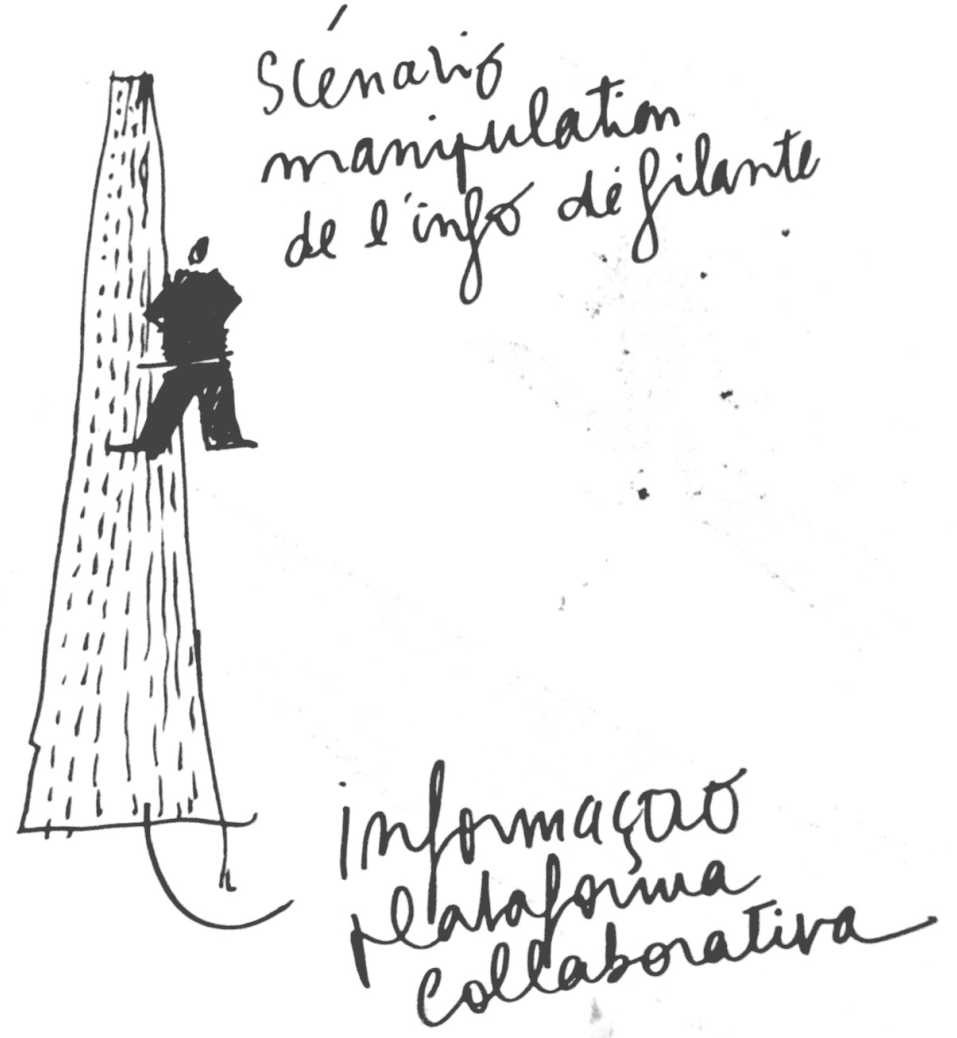 Scénario
manipulation
de l'info défilante
informação
plataforma
collaborativa